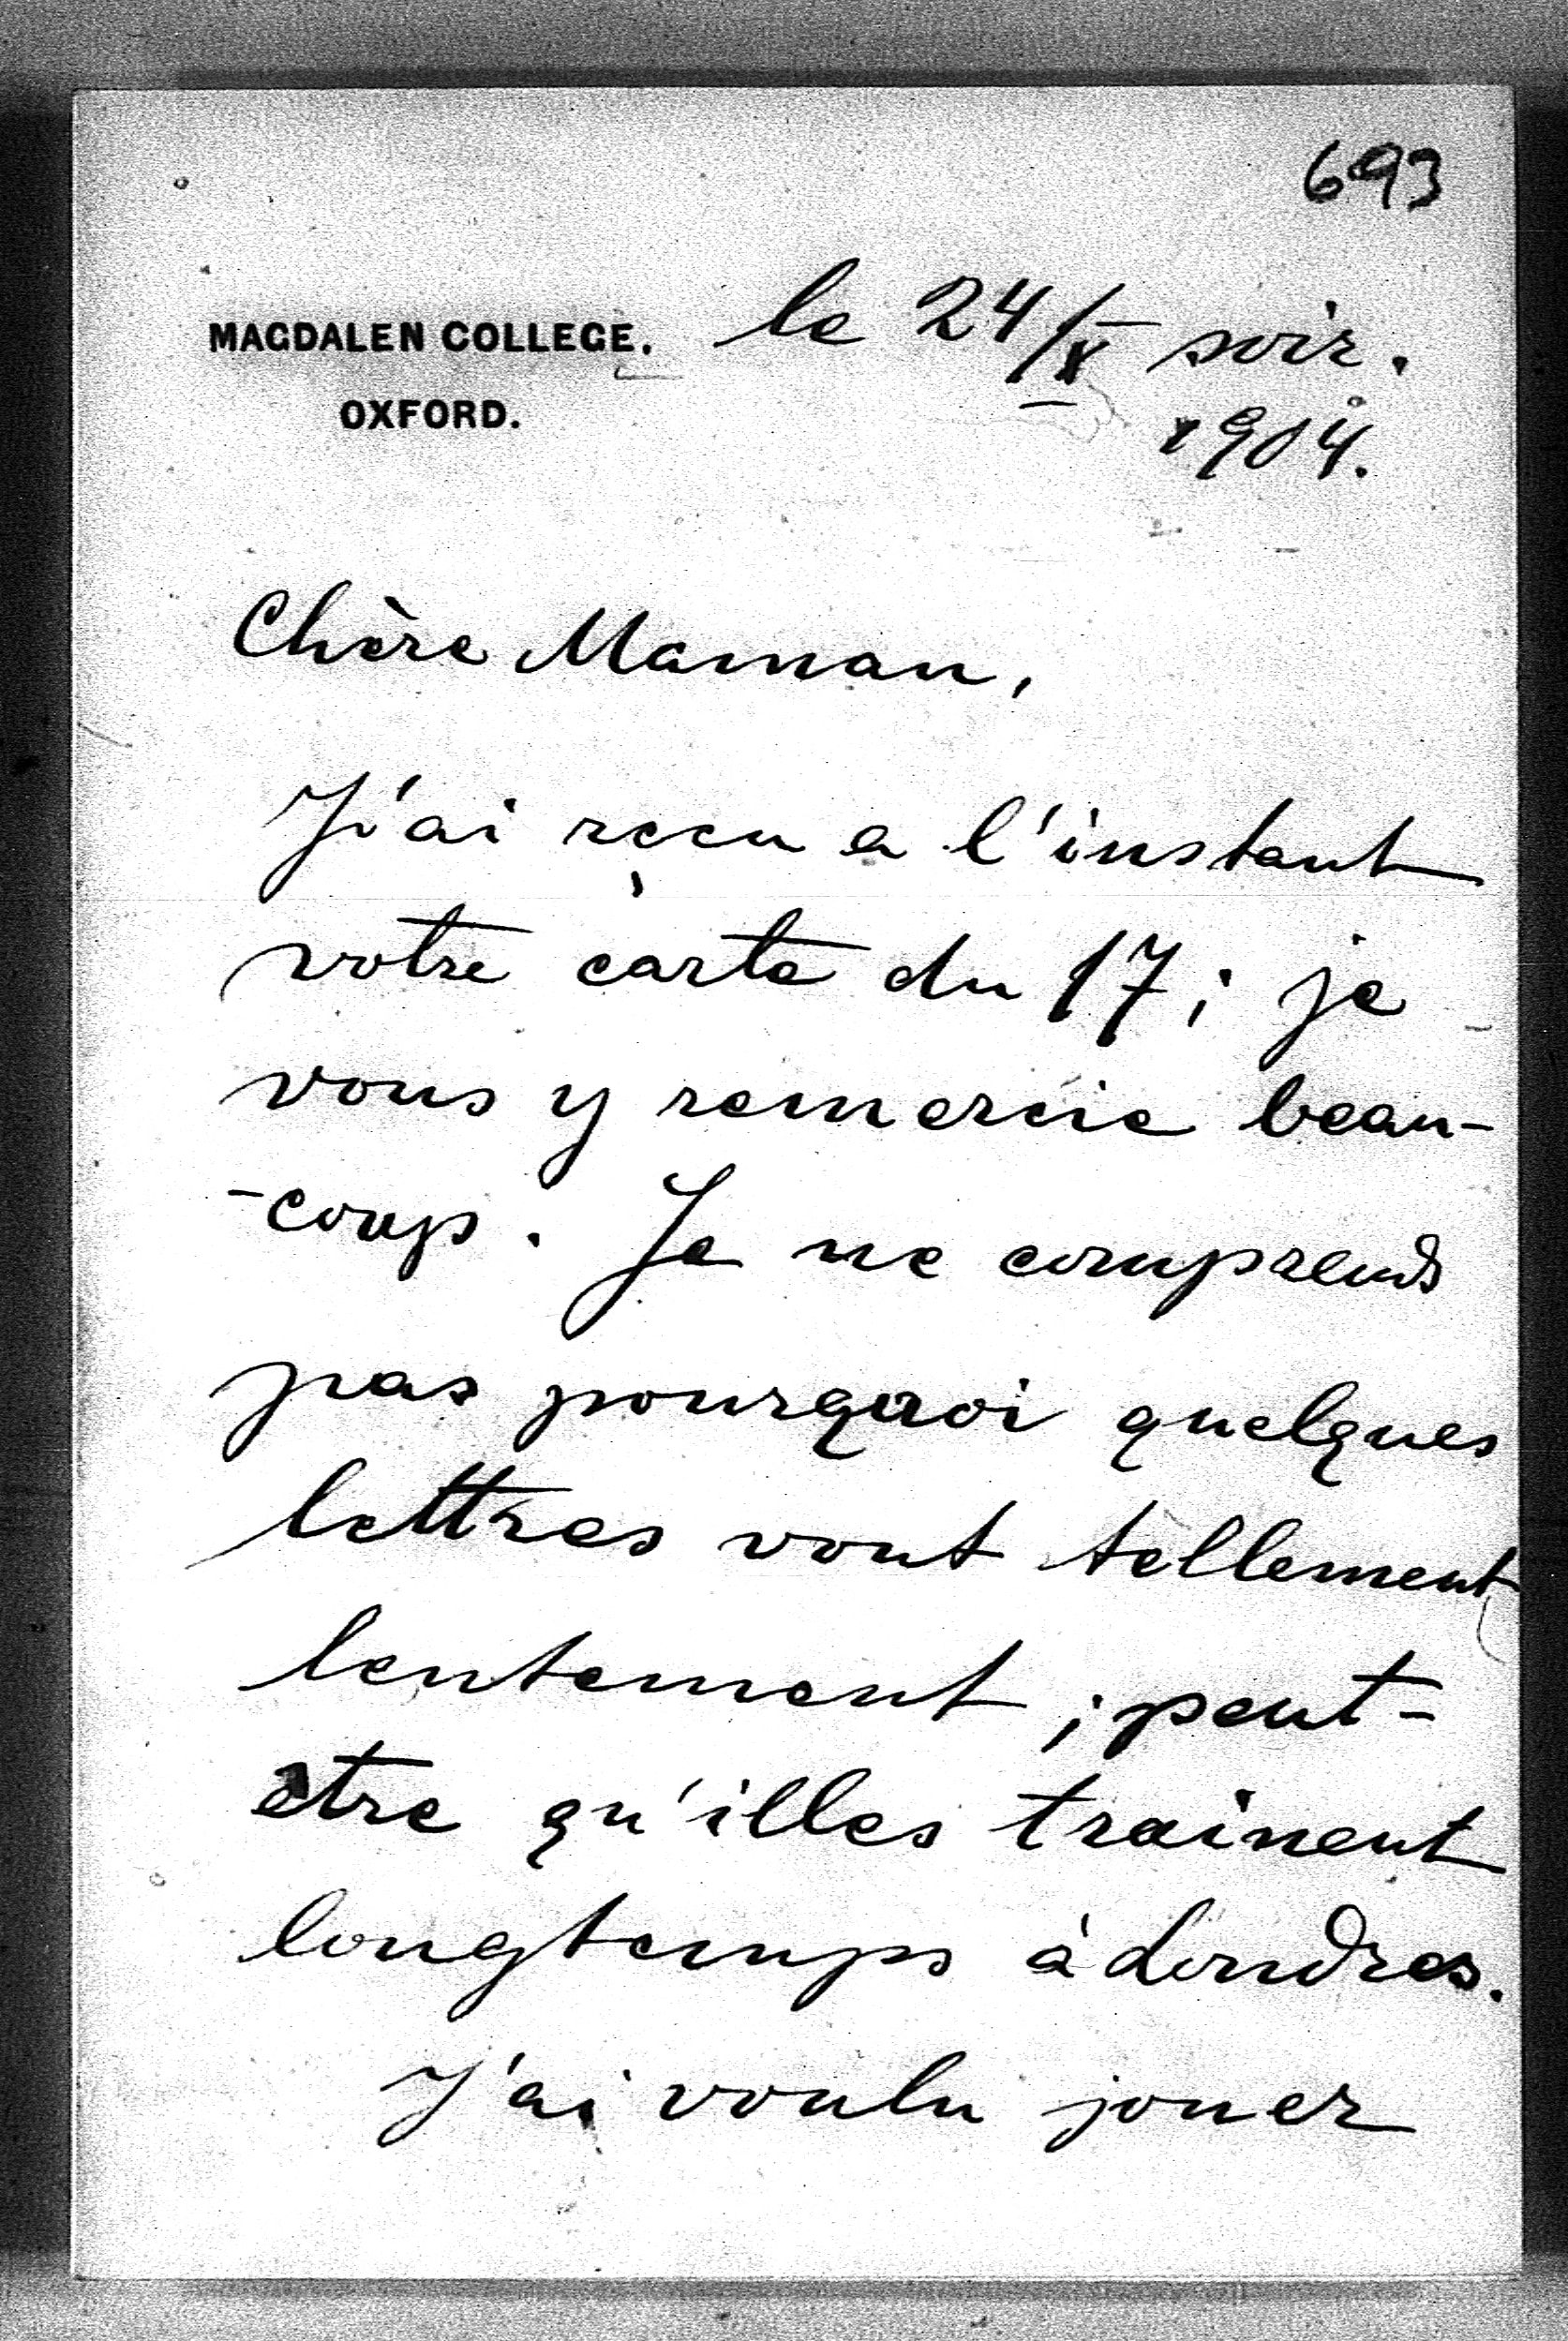 693
MAGDALEN COLLEGE. le 24/X soir.
OXFORD. 1904.
Chère Maman,
J'ai reçu a l'instant
votre carte du 17; je
vous y remercie beau-
-coup. Je ne comprends
pas pourquoi quelques
lettres vont tellement
lentement; peut-
etre qu'illes trainent
longtemps à Londres.
J'ai voulu jouer